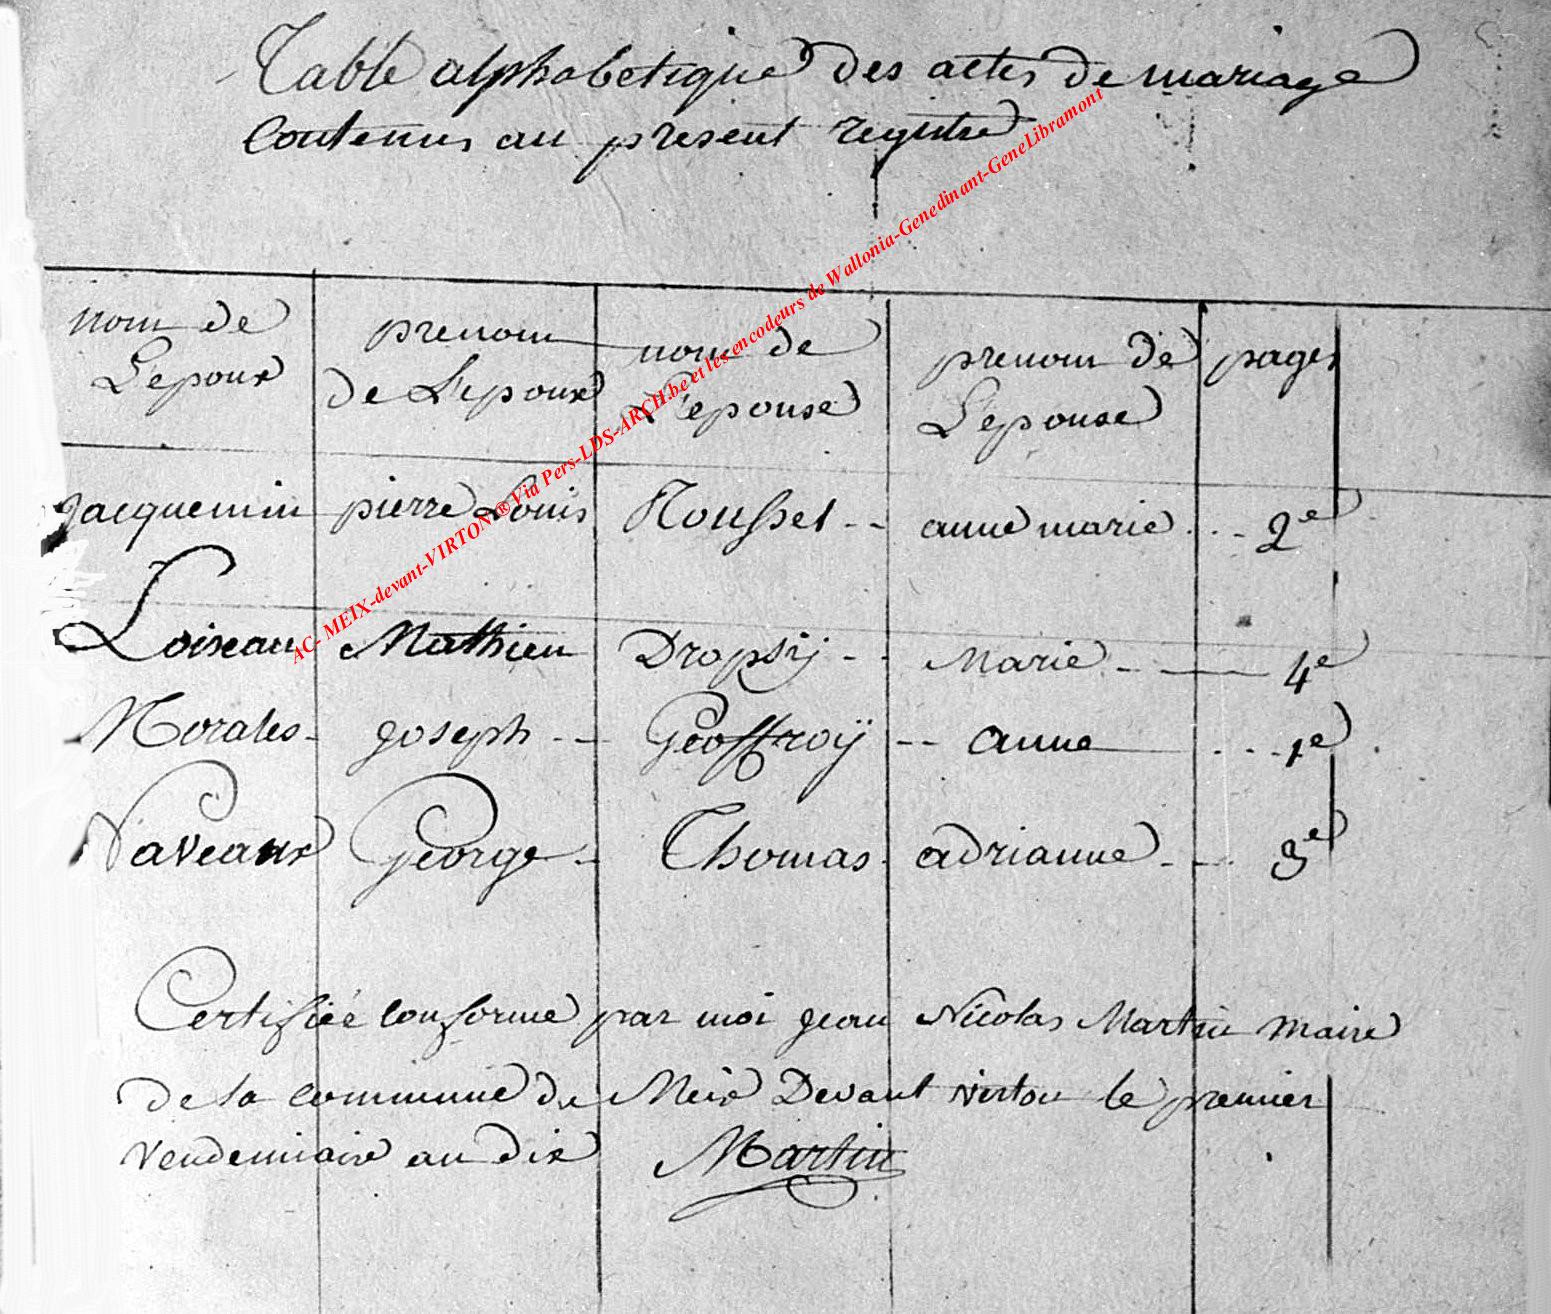 Table alphabetique des actes de mariage
Contenus au present registre
nom de L'epoux prenom de L'epoux nom de L'epouse prenom de L'epouse pages
Jacquemin pierre Louis Rousset -- anne marie ... 2e
Loiseau Mathieu Dropsÿ -- Marie -- 4e
Morales - joseph -- Geoffroÿ -- anne ... 1e
Naveaux George - Thomas adrianne -- 3e
Certifiée conforme par moi jean Nicolas Martin maire
de la commune de Meix Devant virton le premier
vendemiaire an dix Martin
AC- MEIX-devant-VIRTON ® Via Pers-LDS-ARCH.be et les encodeurs de Wallonia-Genedinant-GeneLibramont